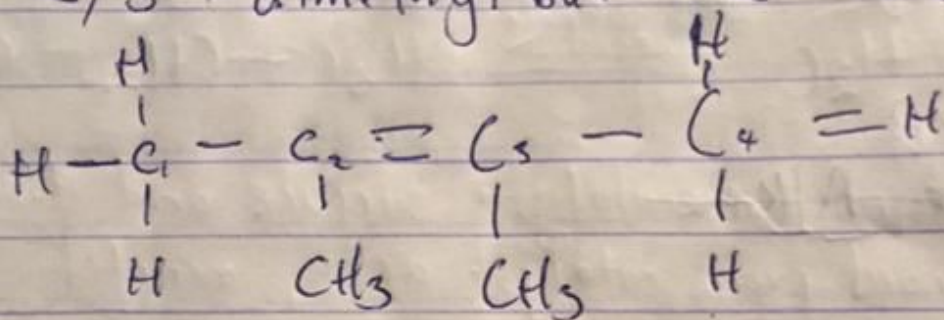 H H
H — C₁ — C₂ = C₃ — C₄ = H
H CH₃ CH₃ H